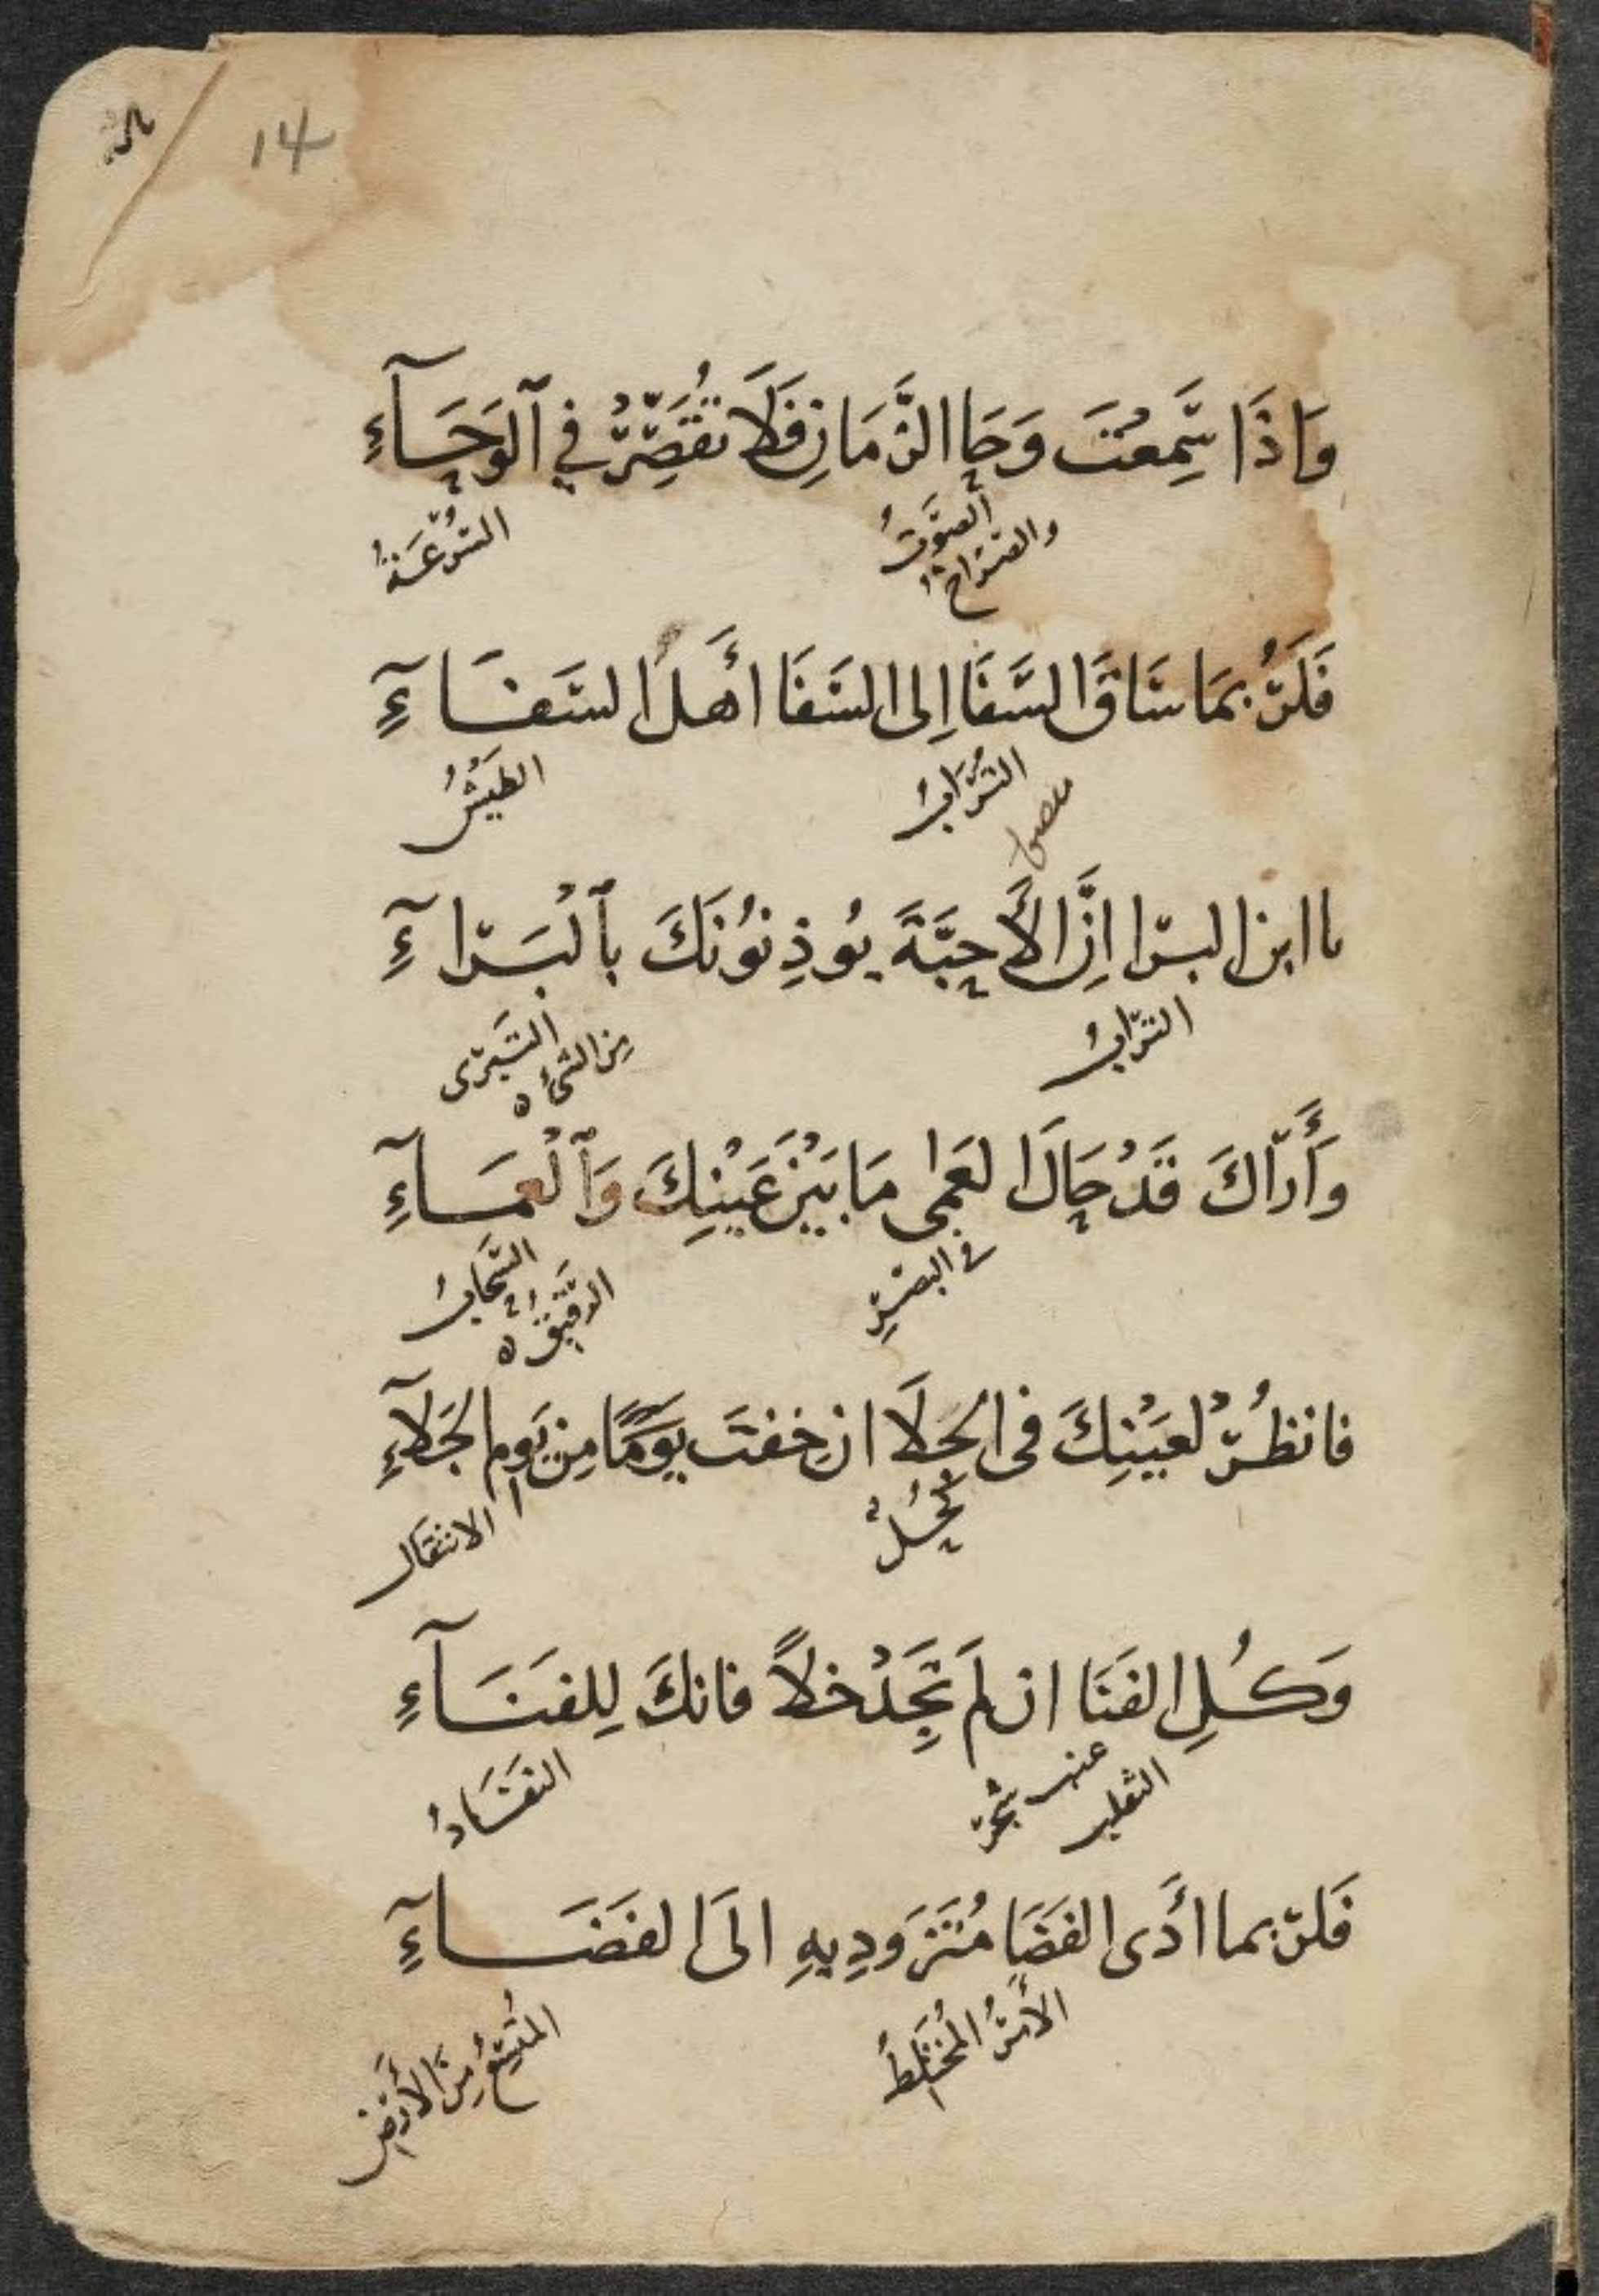 14
وَاذَا سَمِعْتَ وَحَا الزَّمَانِ فَلَا تُقَصِّرْ فِي ٱلْوَحَآءِ
الصَّوْتُ
والصراخ
السُّرْعَةُ
فَلَرُبَّمَا سَاقَ السَّفَا اِلى السَّفَا أَهلَ السَّفَآءِ
التُّرَابُ
الطَيْشُ
يا ابن البرا اِنَّ الأَحِبَّةَ يُوذِنُونَكَ بِٱلْبَرَآءِ
التُّرابُ
التَبَرّى
مِن الشىءِ ه
وَأَرَاكَ قَدْ حَالَ العَمى مَا بَيْنَ عَيْنِكَ وَٱلْعَمَآءِ
في البصَرِ
السَّحَابُ
الرَّقِيقُ ه
فانظُرْ لعَيْنِكَ فى الجَلَا ان خِفتَ يَوْمًا مِن يَومِ الجَلَآءِ
كُحْلٌ
الانتقال
وَكُلِ الفَنَا ان لَم تَجِدْ خلاً فانكَ لِلفَنَآءِ
عنب
الثعلب
شجر
النفَادُ
فَلربما أَدى الفَضَا مُتَزَوِدِيهِ الَى الفَضَآءِ
الأَمرُ المُختَلِطُ
المُتَّسِعُ مِنَ الأَرْضِ